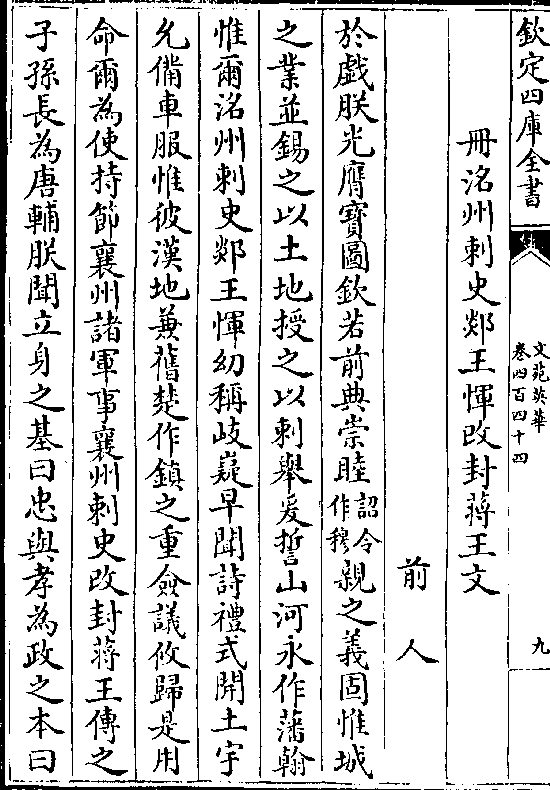 欽定四庫全書
文苑英華
卷四百四十四
九
冊洺州刺史郯王惲改封蔣王文
前人
於戲朕光膺寶圖欽若前典崇睦詔令作穆親之義固惟城
之業並錫之以土地授之以刺舉爰誓山河永作藩翰
惟爾洺州刺史郯王惲幼稱岐嶷早聞詩禮式開土宇
允備車服惟彼漢地兼舊楚作鎮之重僉議攸歸是用
命爾為使持節襄州諸軍事襄州刺史改封蔣王傳之
子孫長為唐輔朕聞立身之基曰忠與孝為政之本曰